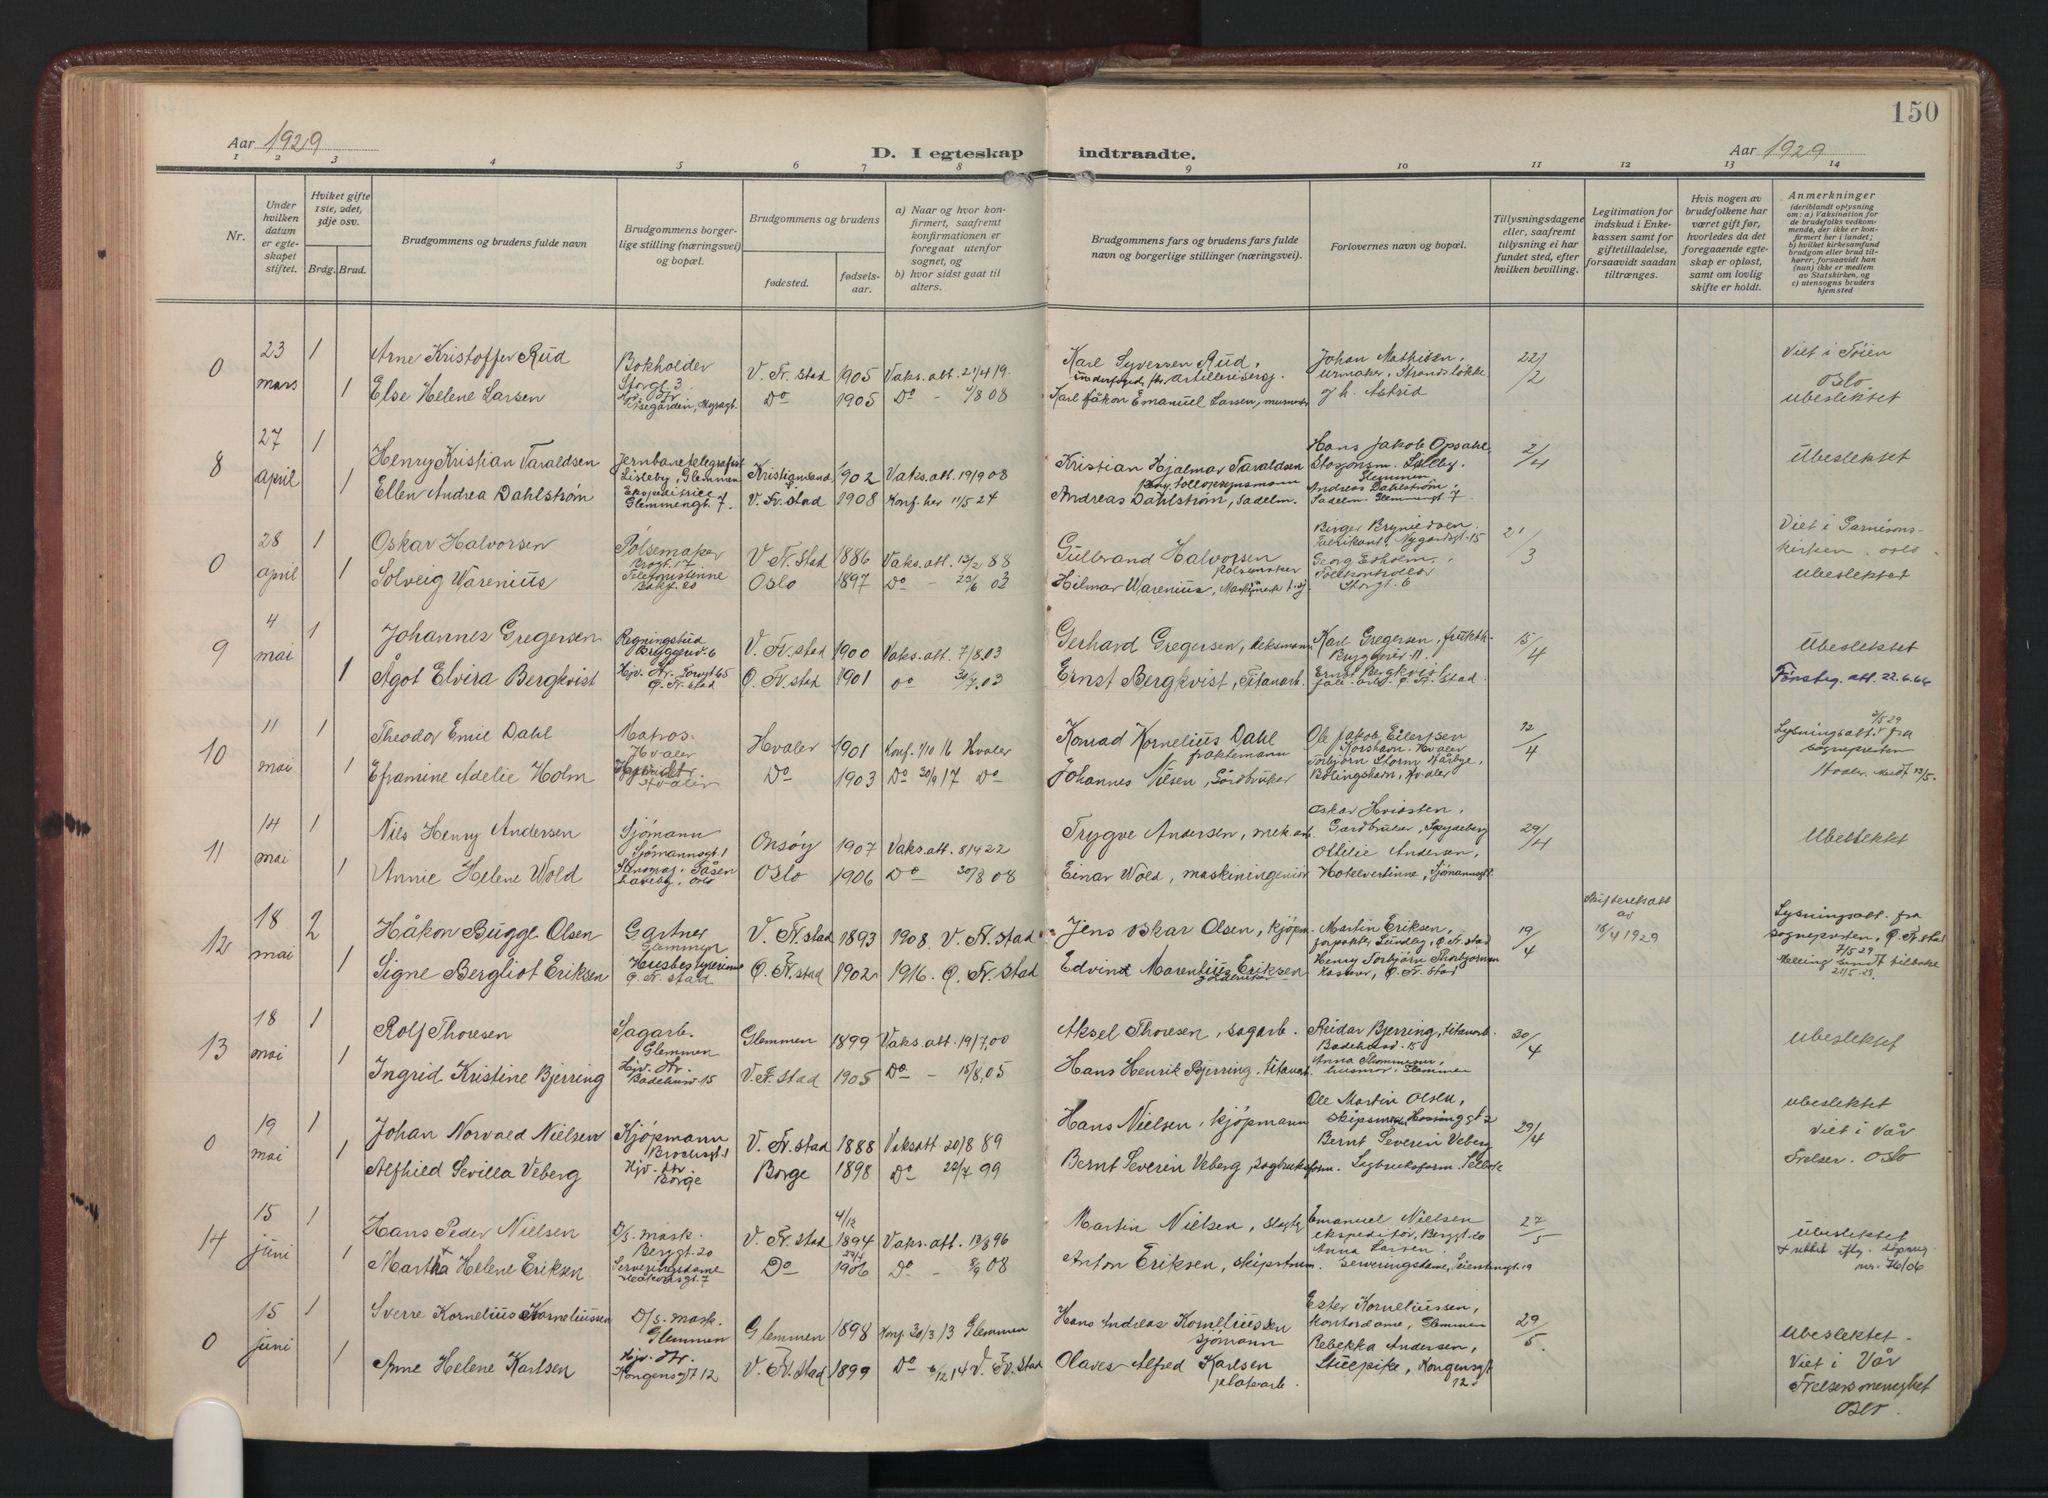 150
Aar 1929
D. I egteskap indtraadte.
Aar 1929
1 2 3 4 5 6 7 8 9 10 11 12 13 14
Nr.
Under hvilken datum er egteskapet stiftet.
Hviket gifte 1ste, 2det, 3dje osv.
Brdg. Brud.
Brudgommens og brudens fulde navn
Brudgommens borgerlige stilling (næringsvei) og bopæl.
Brudgommens og brudens
fødested.
fødselsaar.
a) Naar og hvor konfirmert, saafremt konfirmationen er foregaat utenfor sognet, og
b) hvor sidst gaat til alters.
Brudgommens fars og brudens fars fulde navn og borgerlige stillinger (næringsvei).
Forlovernes navn og bopæl.
Tillysningsdagene eller, saafremt tillysning ei har fundet sted, efter hvilken bevilling.
Legitimation for indskud i Enkekassen samt for giftetilladelse, forsaavidt saadan tiltrænges.
Hvis nogen av brudefolkene har været gift før, hvorledes da det foregaaende egteskap er opløst, samt om lovlig skifte er holdt.
Anmerkninger
(deriblandt oplysning om: a) Vaksination for de brudefolks vedkommende, der ikke er konfirmert her i landet; b) hvilket kirkesamfund brudgom eller brud tilhører, forsaavidt han (hun) ikke er medlem av Statskirken, og c) utensogns bruders hjemsted
0 23 mars 1 Arne Kristoffer Rud Bokholder Storgt. 3 V. Fr. stad 1905 Vaks. att. 21/4 19. Karl Syversen Rud, Johan Mathisen, urmaker, 22/2 Viet i Tøien Oslo
1 Else Helene Larsen Do 1905 Do - 1/8 08 Karl Håkon Emanuel Larsen, og h. Astrid ubeslektet
8 27 april 1 Henry Kristian Taraldsen Jernbanetelegrafist Lisleby, Glemmen Kristiansand 1902 Vaks. att. 19/9 08 Kristian Hjalmar Taraldsen Hans Jakob Opsahl, Stasjonsm. Lisleby. Glemmen 2/4 Ubeslektet
1 Ellen Andrea Dahlstrøm Ekspeditrise Glemmengt. 7. V. Fr. stad 1908 Konf. her 11/5 24 Andreas Dahlstrøm, Sadelm. Andreas Dahlstrøm, Sadelm. Glemmengt. 7
0 28 april 1 Oskar Halvorsen Pølsemaker V. Fr. stad 1886 Vaks. att. 13/2 88 Gulbrand Halvorsen pølsemaker Birger Bryniedsen. Fabrikant, Nygårdsgt. 15 21/3 Viet i Garnisonskirken. Oslo.
1 Solveig Warenius Telefonistinne Oslo 1897 Do - 23/6 03 Hilmar Warenius, Georg Edholm, Tollkontrollør Storgt. 6 Ubeslektet
9 4 mai 1 Johannes Gregersen Bryggeriv. 6 V. Fr. stad 1900 Vaks. att. 7/8. 03 Gerhard Gregersen, Karl Gregersen, frukth. Bryggeriv. 11. 15/4 Ubeslektet
1 Ågot Elvira Bergkvist Hjv. Ø. Fr. stad Ø. Fr. stad 1901 Do 30/7. 03 Ernst Bergkvist, Titanarb. Ernst Bergkvist, Ø. Fr. Stad. Førsteg. att. 22.6.66
10 11 mai 1 Theodor Emil Dahl Matros Hvaler Hvaler 1901 Konf. 1/10 16 Hvaler Konrad Kornelius Dahl fraktemann Ole Jakob Eilertsen Korshavn. Hvaler 12/4 Lysningsatt. 7/5 29 fra sognepresten
1 Eframine Adelie Holm Hvaler Do 1903 Do 30/9 17 Do Johannes Nilsen, Gårdbruker Torbjørn Storm Hvaler Hvaler. Medt 13/5.
11 14 mai 1 Nils Henry Andersen Sjømann Sjømannsgt. 1 Onsøy 1907 Vaks. att. 8/4 22 Trygve Andersen, mek. arb. Oskar Hvidsten, Gardbruker, Spydeberg 29/4 Ubeslektet
1 Annie Helene Wold Tåsen haveby. Oslo Oslo 1906 Do 30/8 08 Einar Wold, maskiningeniør Ottilie Andersen, Hotelvertinne, Sjømannsgt.
12 18 mai 2 Håkon Bugge Olsen Gartner Glemmen V. Fr. stad 1893 1908. V. Fr. stad Jens Oskar Olsen, kjøpm. Martin Eriksen, forpakter Lundby, Ø. Fr. stad 19/4 Skifterettsatt av 16/4 1929 Lysningsatt. fra sognepresten, Ø. Fr. stad 7/5 29.
Signe Bergliot Eriksen Husbestyrerinne Ø. Fr. stad Ø. Fr. stad 1902 1916. Ø. Fr. stad Edvind Marentius Eriksen gårdbruker Henry Torbjørn Thorbjørnsen kasser, Ø. Fr. Stad Melding sendt tilbake 21/5 29.
13 18 mai 1 Rolf Thoresen Sagarb. Glemmen Glemmen 1899 Vaks. att. 19/7, 00 Aksel Thoresen, sagarb. Reidar Bjerring, titanarb. Badehusv. 15 30/4 Ubeslektet
1 Ingrid Kristine Bjerring Hjv. Fr. Badehusv. 15 V. Fr. stad 1905 Do - 15/8, 05 Hans Henrik Bjerring. titanarb. Anna Thommesen, husmor, Glemmen
0 19 mai 1 Johan Norvald Nielsen Kjøpmann V. Fr. stad 1888 Vaksatt 20/8 89 Hans Nielsen, kjøpmann Ole Martin Olsen, 29/4 ubeslektet Viet i Vår
1 Alfhild Sevilla Veberg Hjv. Borge Borge 1898 Do 22/7 99 Bernt Severin Veberg, sagbruksform. Bernt Severin Veberg Sagbruksform. Frelser. Oslo
14 15 juni 1 Hans Peder Nielsen D/s. mask. Berggt. 20 V. Fr. stad 4/12 1894 Vaks. att. 13/8 96 Martin Nielsen, Emanuel Nielsen ekspeditør, Berggt. 20 27/5 Ubeslektet
1 Martha Helene Eriksen Serveringsdame Håkonsgt. 7 Do 1906 Do - 8/9 08 Anton Eriksen, skipstøm. Anna Larsen. serveringsdame, + rettet iflg. døpreg. nr. 76/06
0 15 juni 1 Sverre Kornelius Korneliussen D/s. mask. Glemmen Glemmen 1898 Konf. 30/3 13 Glemmen Hans Andreas Korneliussen sjømann Ester Korneliussen, kontordame, Glemmen 29/5. Ubeslektet.
1 Anne Helene Karlsen Hjv. Fr. Kongensgt 12 V. Fr. stad 1899 Do 6/12 14 V. Fr. stad Olaves Alfred Karlsen platearb. Rebekka Andersen, Stuepike, Kongensgt 12. Viet i Vår Frelsers menighet